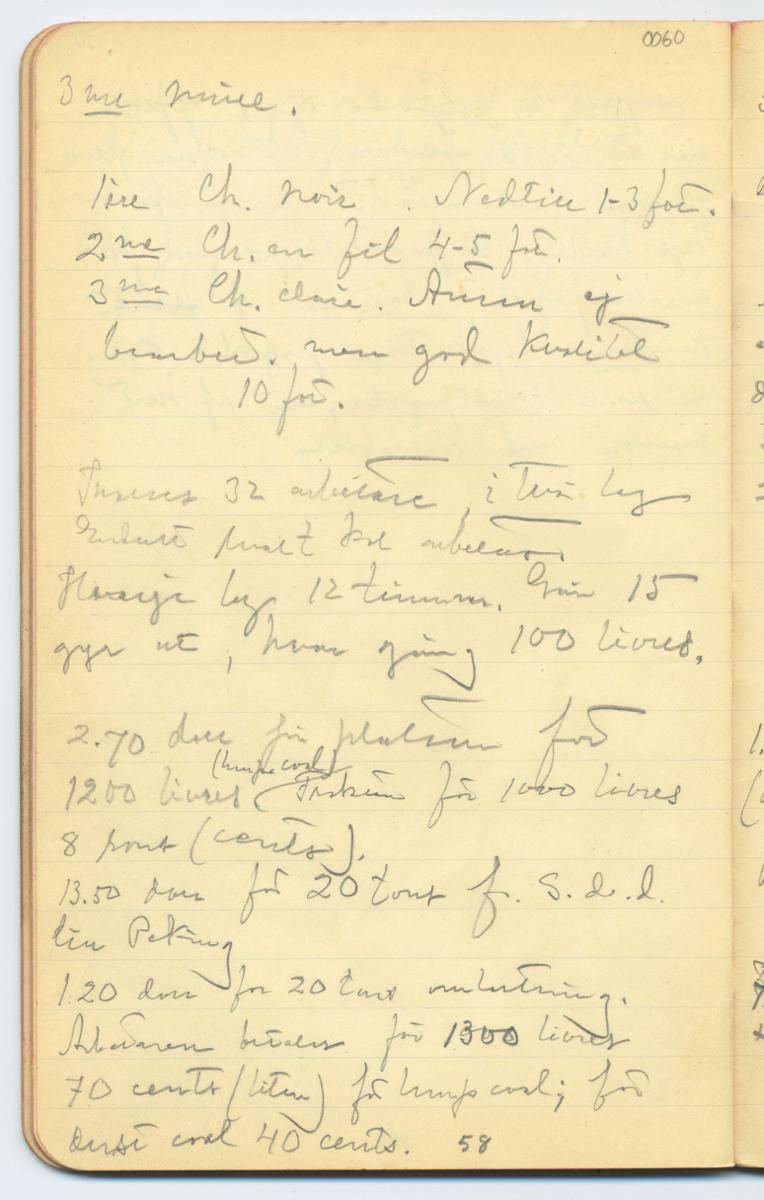 0060
3me mine.
1ère Ch. noir. Nedtill 1-3 fot.
2me Ch. en fil 4-5 fot.
3me Ch. claie. Ännu ej
bearbet. men god kvalitet
10 fot.
32 arbetare, i två lag
kol arbetar.
lag 12 timmar. Går 15
ggr ut, hvar gång 100 livres.
2.70 doll för platsen för
(lump coal)
1200 livres för 1000 livres
8 sous (cents).
13.50 doll för 20 tons fr. S. d. d.
till Peking
1.20 doll for 20 tons omlastning.
Arbetaren betalas för 1300 livres
70 cents (liten) för lump coal; för
dust coal 40 cents. 58